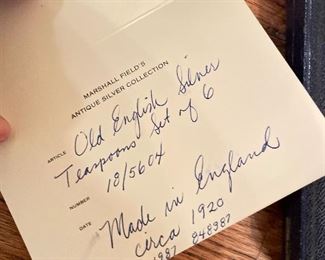 MARSHALL FIELD'S
ANTIQUE SILVER COLLECTION
ARTICLE Old English Silver
Teaspoons Set of 6
NUMBER 18/5604
DATE Made in England
circa 1920
1987 848987